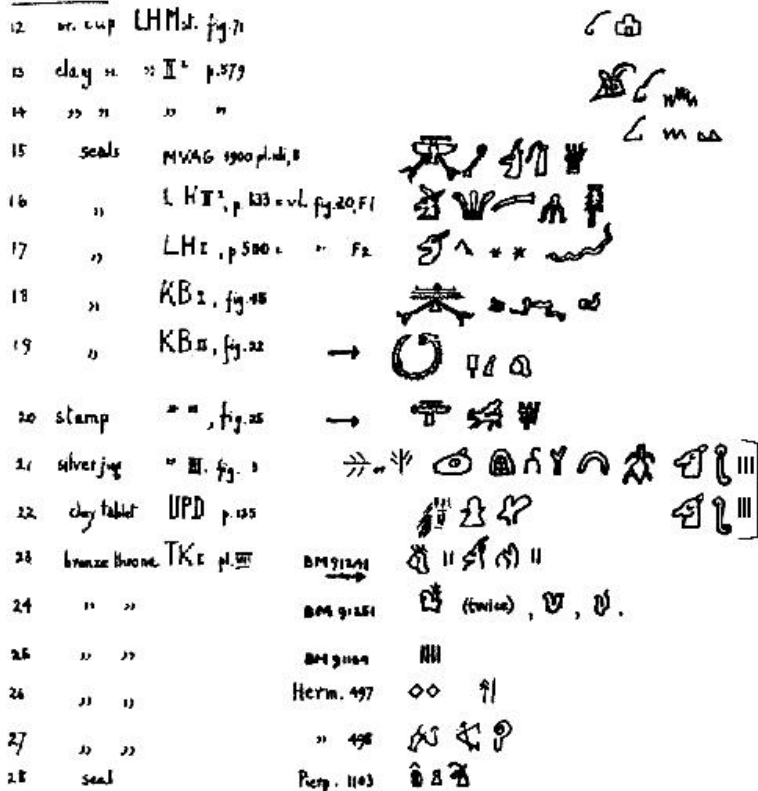 12 br. cup LHMst. fig. 71
13 clay " " II² p. 579
14 " " " "
15 seals MVAG 1900 pl. , 8
16 " L H II², p 133 = vL fig. 20, F1
17 " LH I, p 580 = " F2
18 " KB I, fig.
19 " KB II, fig. 22 →
20 stamp " ", fig. 25 →
21 silver jug " III. fig. or
22 clay tablet UPD p. 135
23 bronze throne TK I pl. VIII BM 91241 →
24 " " BM 91251 (twice) , , .
25 " " BM
26 " " Herm. 497
27 " " " 498
28 seal Pierp. 1103